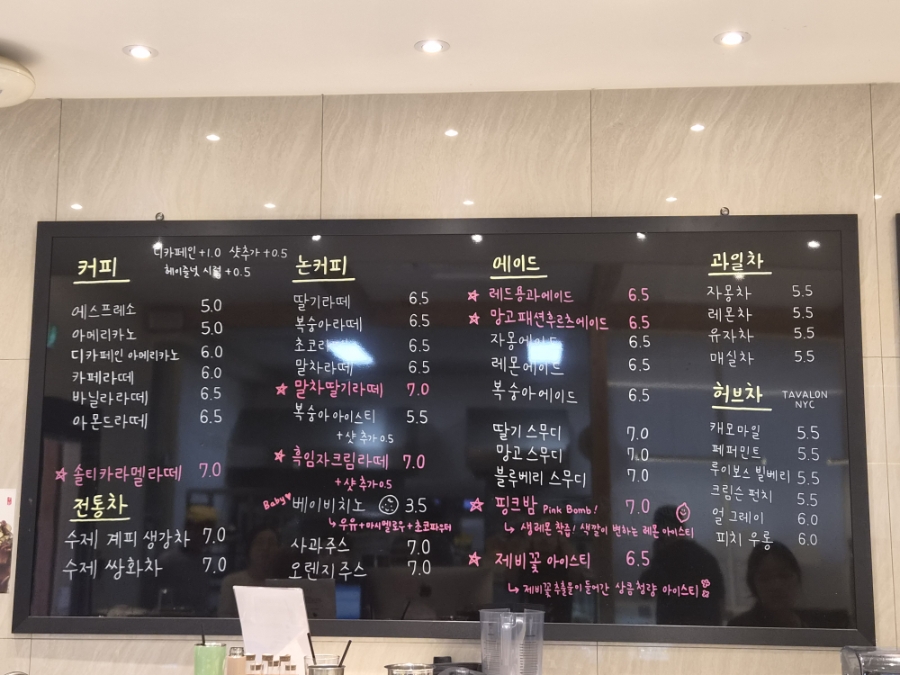 커피
디카페인 +1.0 샷추가 +0.5
헤이즐넛 시럽 +0.5
에스프레소 5.0
아메리카노 5.0
디카페인 아메리카노 6.0
카페라떼 6.0
바닐라라떼 6.5
아몬드라떼 6.5
☆ 솔티카라멜라떼 7.0
전통차
수제 계피 생강차 7.0
수제 쌍화차 7.0
논커피
딸기라떼 6.5
복숭아라떼 6.5
초코라떼 6.5
말차라떼 6.5
☆ 말차딸기라떼 7.0
복숭아아이스티 5.5
+샷추가 0.5
☆ 흑임자크림라떼 7.0
+샷추가 0.5
Baby♥ 베이비치노 3.5
↳ 우유+마시멜로우+초코파우더
사과주스 7.0
오렌지주스 7.0
에이드
☆ 레드용과에이드 6.5
☆ 망고패션후르츠에이드 6.5
자몽에이드 6.5
레몬에이드 6.5
복숭아에이드 6.5
딸기 스무디 7.0
망고 스무디 7.0
블루베리 스무디 7.0
☆ 핑크밤 Pink Bomb! 7.0
↳ 생레몬 착즙! 색깔이 변하는 레몬 아이스티
☆ 제비꽃 아이스티 6.5
↳ 제비꽃추출물이 들어간 상큼청량 아이스티
과일차
자몽차 5.5
레몬차 5.5
유자차 5.5
매실차 5.5
허브차 TAVALON
NYC
캐모마일 5.5
페퍼민트 5.5
루이보스 빌베리 5.5
크림슨 펀치 5.5
얼 그레이 6.0
피치 우롱 6.0